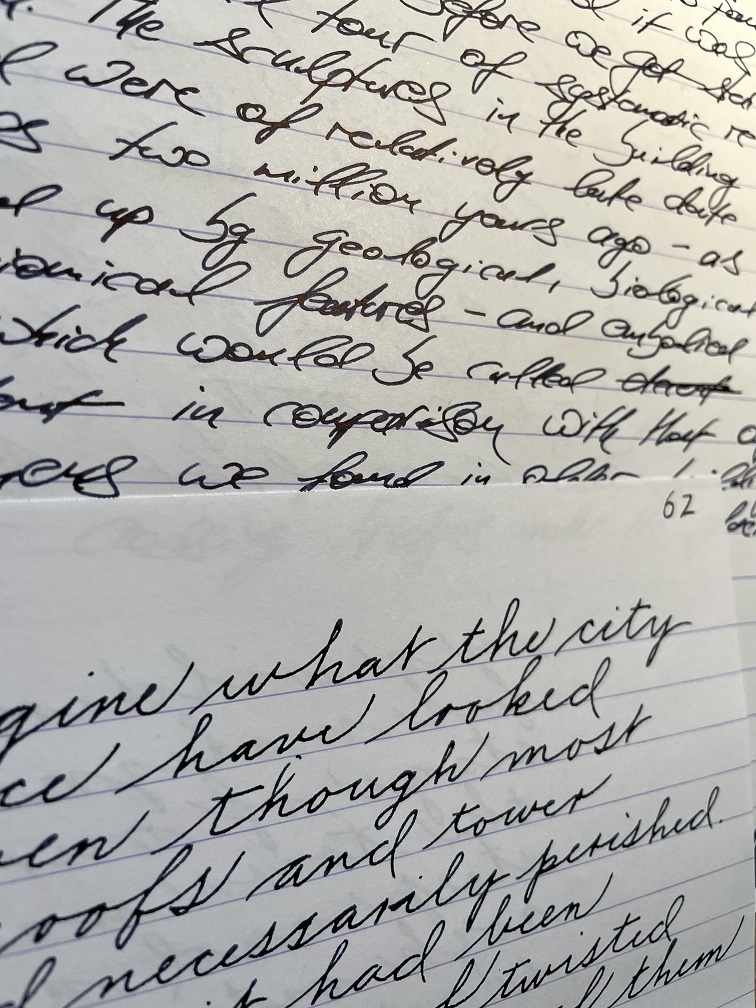 before we got
it was
tour of systematic
The sculptures in the building
were of relatively late date
two million years ago - as
up by geological, biological
features - and embodied
which would be called
in comparison with that
we found in older
62
gine what the city
ce have looked
en though most
oofs and tower
necessarily perished.
it had been
twisted
them